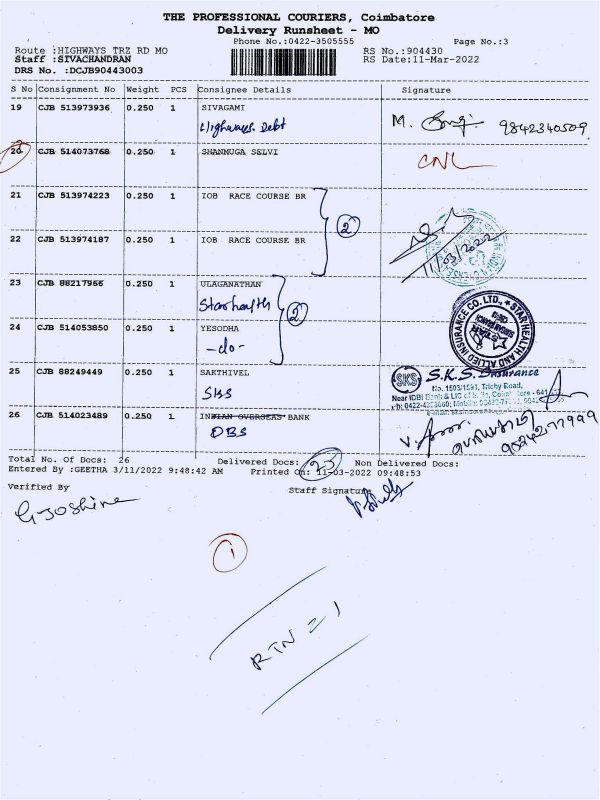 THE PROFESSIONAL COURIERS, Coimbatore
Delivery Runsheet - MO
Phone No.:0422-3505555
Page No.:3
Route :HIGHWAYS TRZ RD MO
RS No.:904430
Staff :SIVACHANDRAN
RS Date:11-Mar-2022
DRS No. :DCJB90443003
S No Consignment No Weight PCS Consignee Details Signature
19 CJB 513973936 0.250 1 SIVAGAMI
Highways Debt
M. 9842340509
20 CJB 514073768 0.250 1 SHANMUGA SELVI
CNL
21 CJB 513974223 0.250 1 IOB RACE COURSE BR
2
22 CJB 513974187 0.250 1 IOB RACE COURSE BR
11/03/2022
23 CJB 88217966 0.250 1 ULAGANATHAN
Star health
2
STAR HEALTH AND ALLIED INSURANCE CO. LTD.,
24 CJB 514053850 0.250 1 YESODHA
-do-
25 CJB 88249449 0.250 1 SAKTHIVEL
SKS
SKS S.K.S. Insurance
No. 1503/1591, Trichy Road,
Near IDBI Bank & LIC
26 CJB 514023489 0.250 1 INDIAN OVERSEAS BANK
DBS
Total No. Of Docs: 26 Delivered Docs: 23 Non Delivered Docs:
Entered By :GEETHA 3/11/2022 9:48:42 AM Printed On: 11-03-2022 09:48:53
Verified By Staff Signature
G Joshine
1
RTN = 1